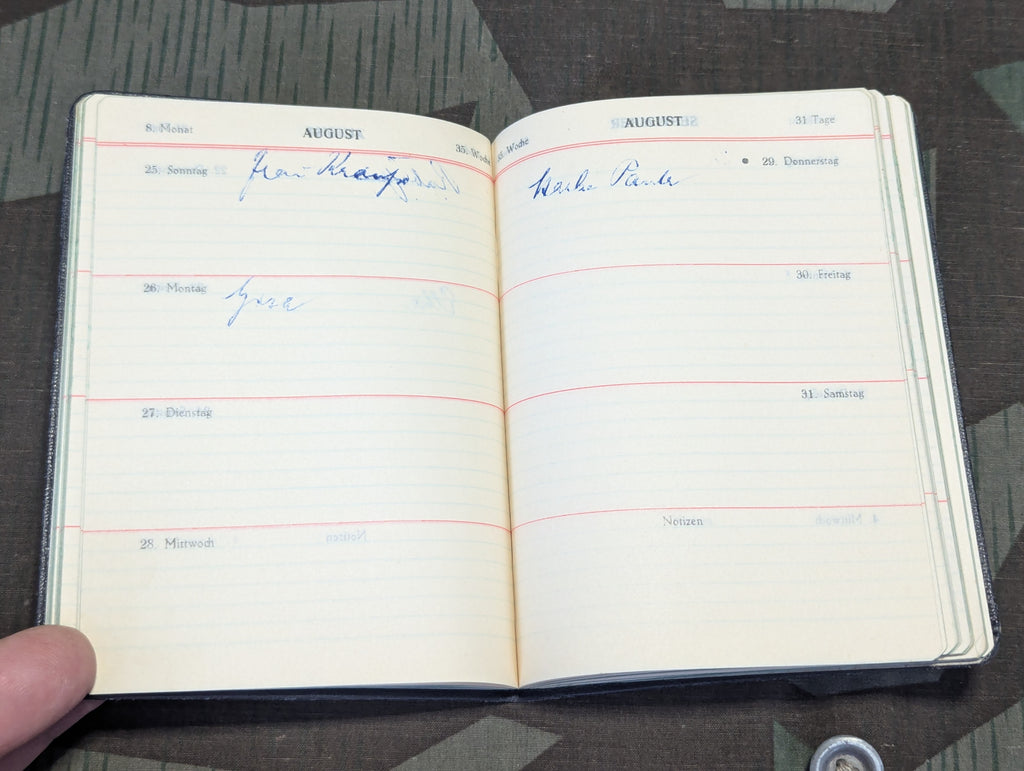 8. Monat AUGUST 35. Woche
25. Sonntag Frau
26. Montag
27. Dienstag
28. Mittwoch
35. Woche AUGUST 31 Tage
29. Donnerstag
30. Freitag
31. Samstag
Notizen